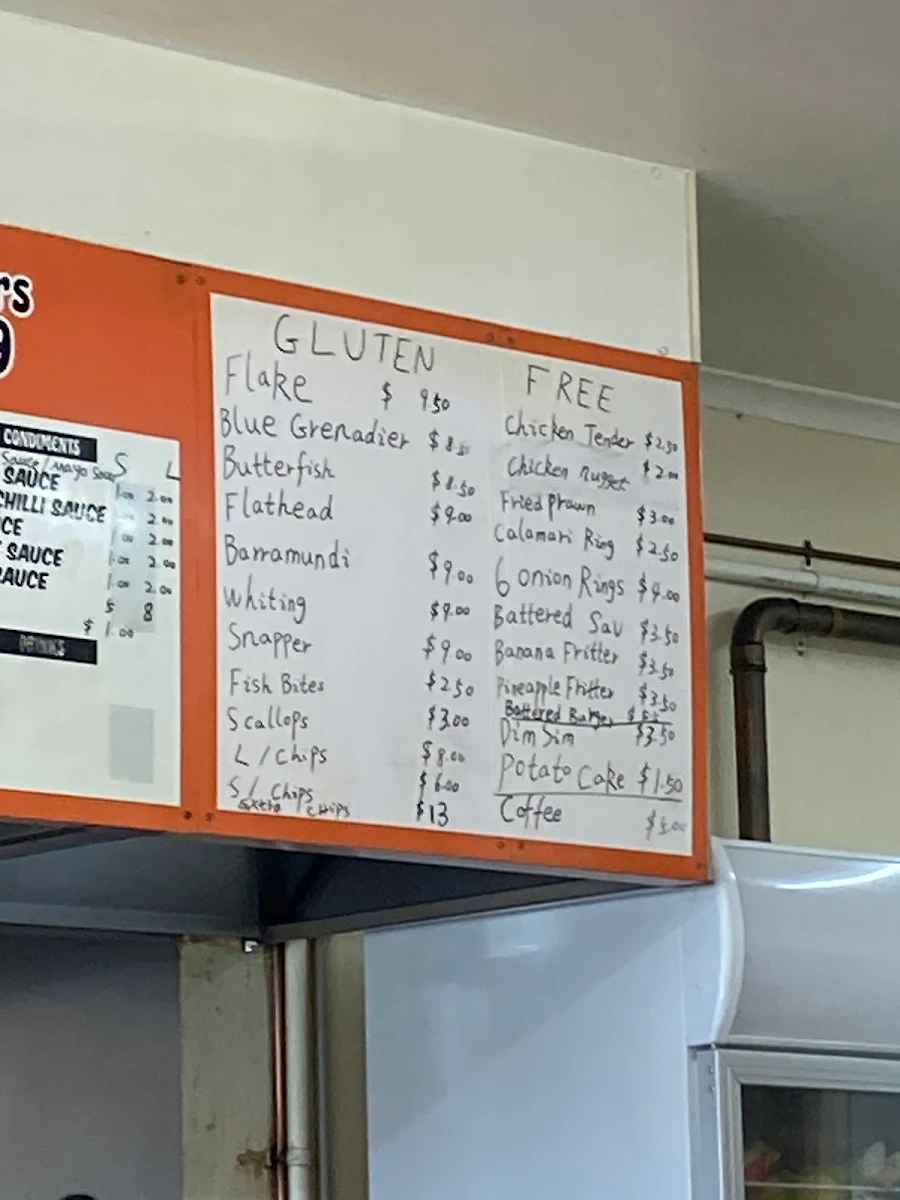 rs
9
CONDIMENTS
Sauce/Mayo Sour S L
SAUCE 1.00 2.00
CHILLI SAUCE 1.00 2.00
CE 1.00 2.00
SAUCE 1.00 2.00
SAUCE 1.00 2.00
$ 8
$ 1.00
DRINKS
GLUTEN
Flake $ 9.50
Blue Grenadier $8.50
Butterfish $8.50
Flathead $9.00
Barramundi $9.00
Whiting $9.00
Snapper $9.00
Fish Bites $2.50
Scallops $3.00
L/Chips $8.00
S/Chips $6.00
extra chips $13
FREE
Chicken Tender $2.50
Chicken nugget $2.00
Fried Prawn $3.00
Calamari Ring $2.50
6 onion Rings $4.00
Battered Sav $3.50
Banana Fritter $3.50
Pineapple Fritter $3.50
Battered Burger
Dim Sim $3.50
Potato Cake $1.50
Coffee